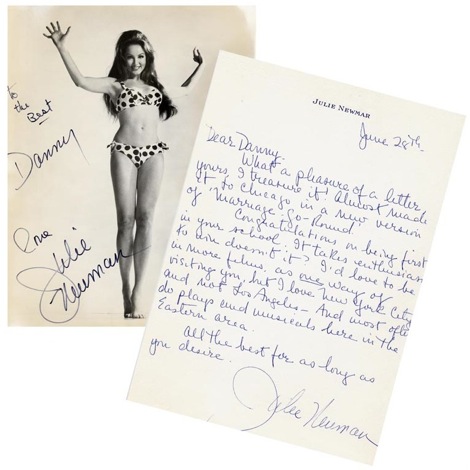 To
the
Best
Danny
Love
Julie
Newmar
JULIE NEWMAR
June 28th
Dear Danny,
What a pleasure of a letter
yours, I treasure it! Almost made
it to Chicago in a new version
of "Marriage-Go-Round
Congratulations on being first
in your school. It takes enthusiasm
to win doesn't it? I'd love to be
in more films, as one way of
visiting you but I love New York City
and not Los Angeles - And most often
do plays and musicals here in the
Eastern area.
All the best for as long as
you desire.
Julie Newmar